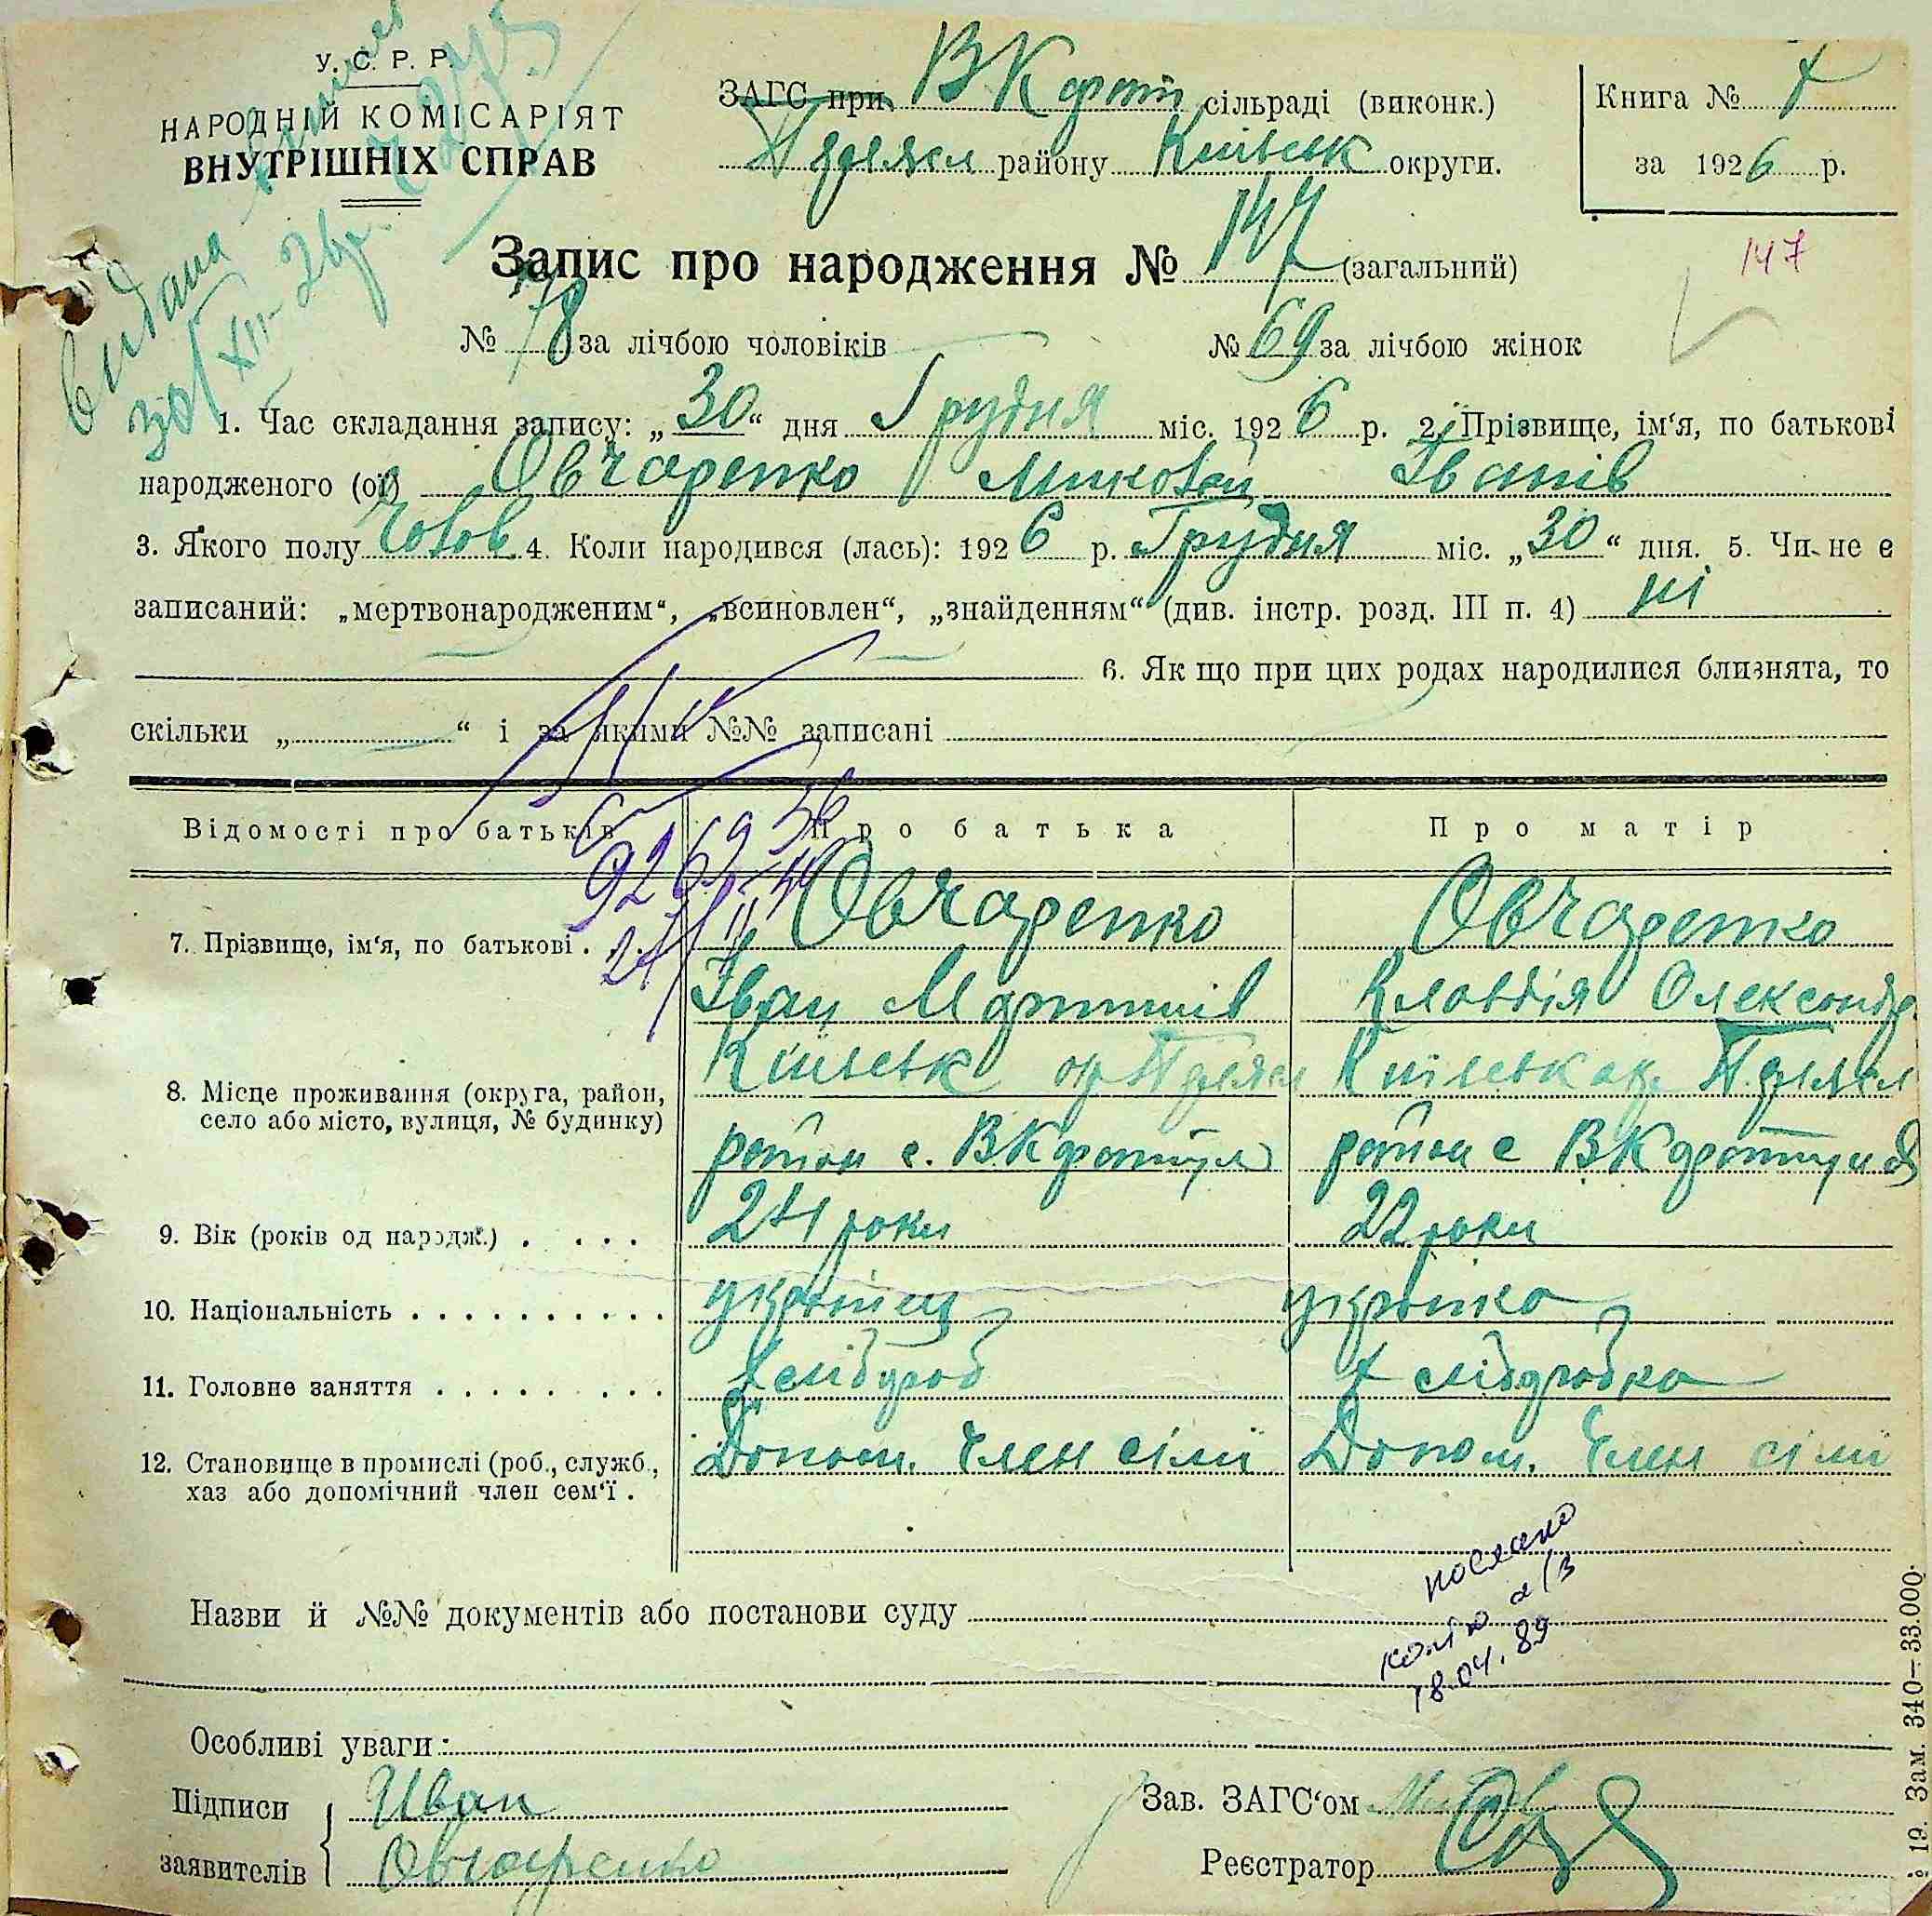 У. С. Р. Р.
НАРОДНІЙ КОМІСАРІЯТ
ВНУТРІШНІХ СПРАВ
ЗАГС при В Карат сільраді (виконк.)
району Київськ округи.
Книга №
за 1926 р.
видана
30/XII-26р.
Запис про народження № 147 (загальний)
147
№ 78 за лічбою чоловіків № 69 за лічбою жінок
1. Час складання запису: „30“ дня Грудня міс. 1926 р. 2. Прізвище, ім‘я, по батькові
народженого (ої) Овчаренко Миколай Іванів
3. Якого полу Чолов 4. Коли народився (лась): 1926 р. Грудня міс. „30“ дня. 5. Чи не є
записаний: „мертвонародженим“, „всиновлен“, „знайденням“ (див. інстр. розд. III п. 4) ні
6. Як що при цих родах народилися близнята, то
скільки „ “ і за якими №№ записані
Відомості про батьків Про батька Про матір
7. Прізвище, ім‘я, по батькові . Овчаренко Овчаренко
Іван Мартинів Клавдія Олександр
8. Місце проживання (округа, район,
село або місто, вулиця, № будинку)
Київськ ок Київськ ок.
район с. В Каратуля район с В Каратуля
9. Вік (років од народж.) . . . . 24 роки 22 роки
10. Національність . . . . . . . . . . українец українка
11. Головне заняття . . . . . . . . Хлібороб Хліборобка
12. Становище в промислі (роб., служб.,
хаз або допомічний член сем‘ї .
Допом. член сімї Допом. член сімї
послано
копію а/в
18.04.89
Назви й №№ документів або постанови суду
Особливі уваги:
Підписи Иван
заявителів Овчаренко
Зав. ЗАГС‘ом
Реєстратор
19. Зам. 340—33.000.